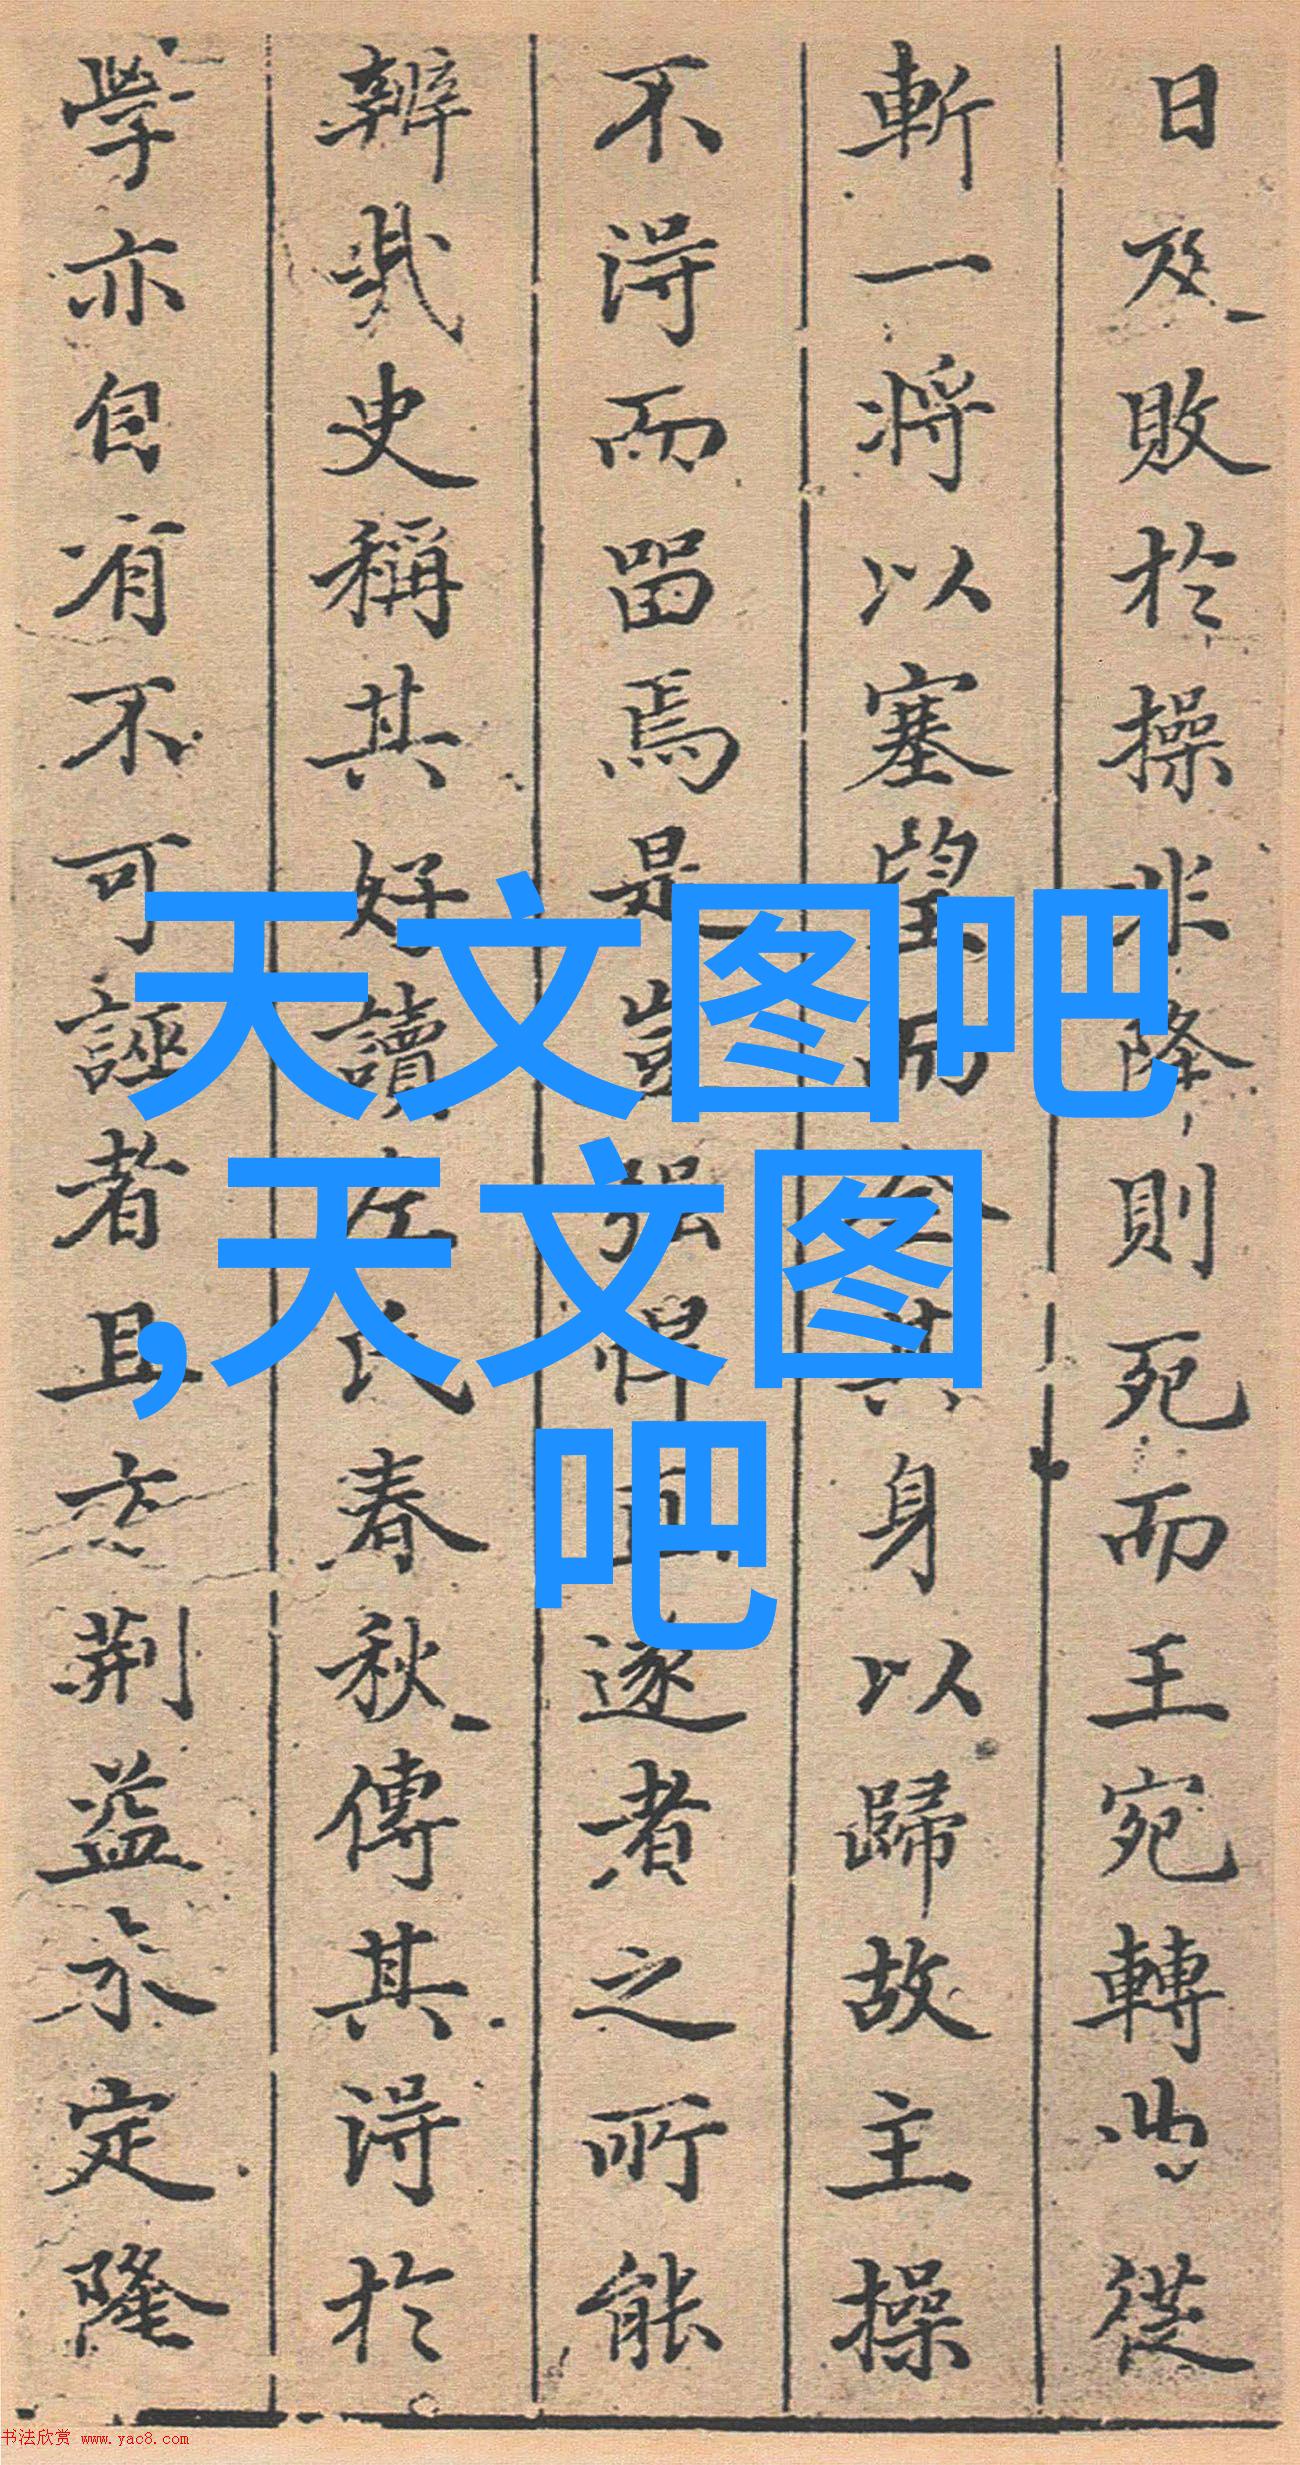 日及敗於操非降則死而王宛轉曲從
斬一將以塞望而全其身以歸故主操
不得而留焉是豈强悍直遂者之所能
辨哉史稱其好讀左氏春秋傳其得於
學亦自有不可誣者且方荆益未定隆
天文图吧
,天文图
吧
书法欣赏 www.yac8.com